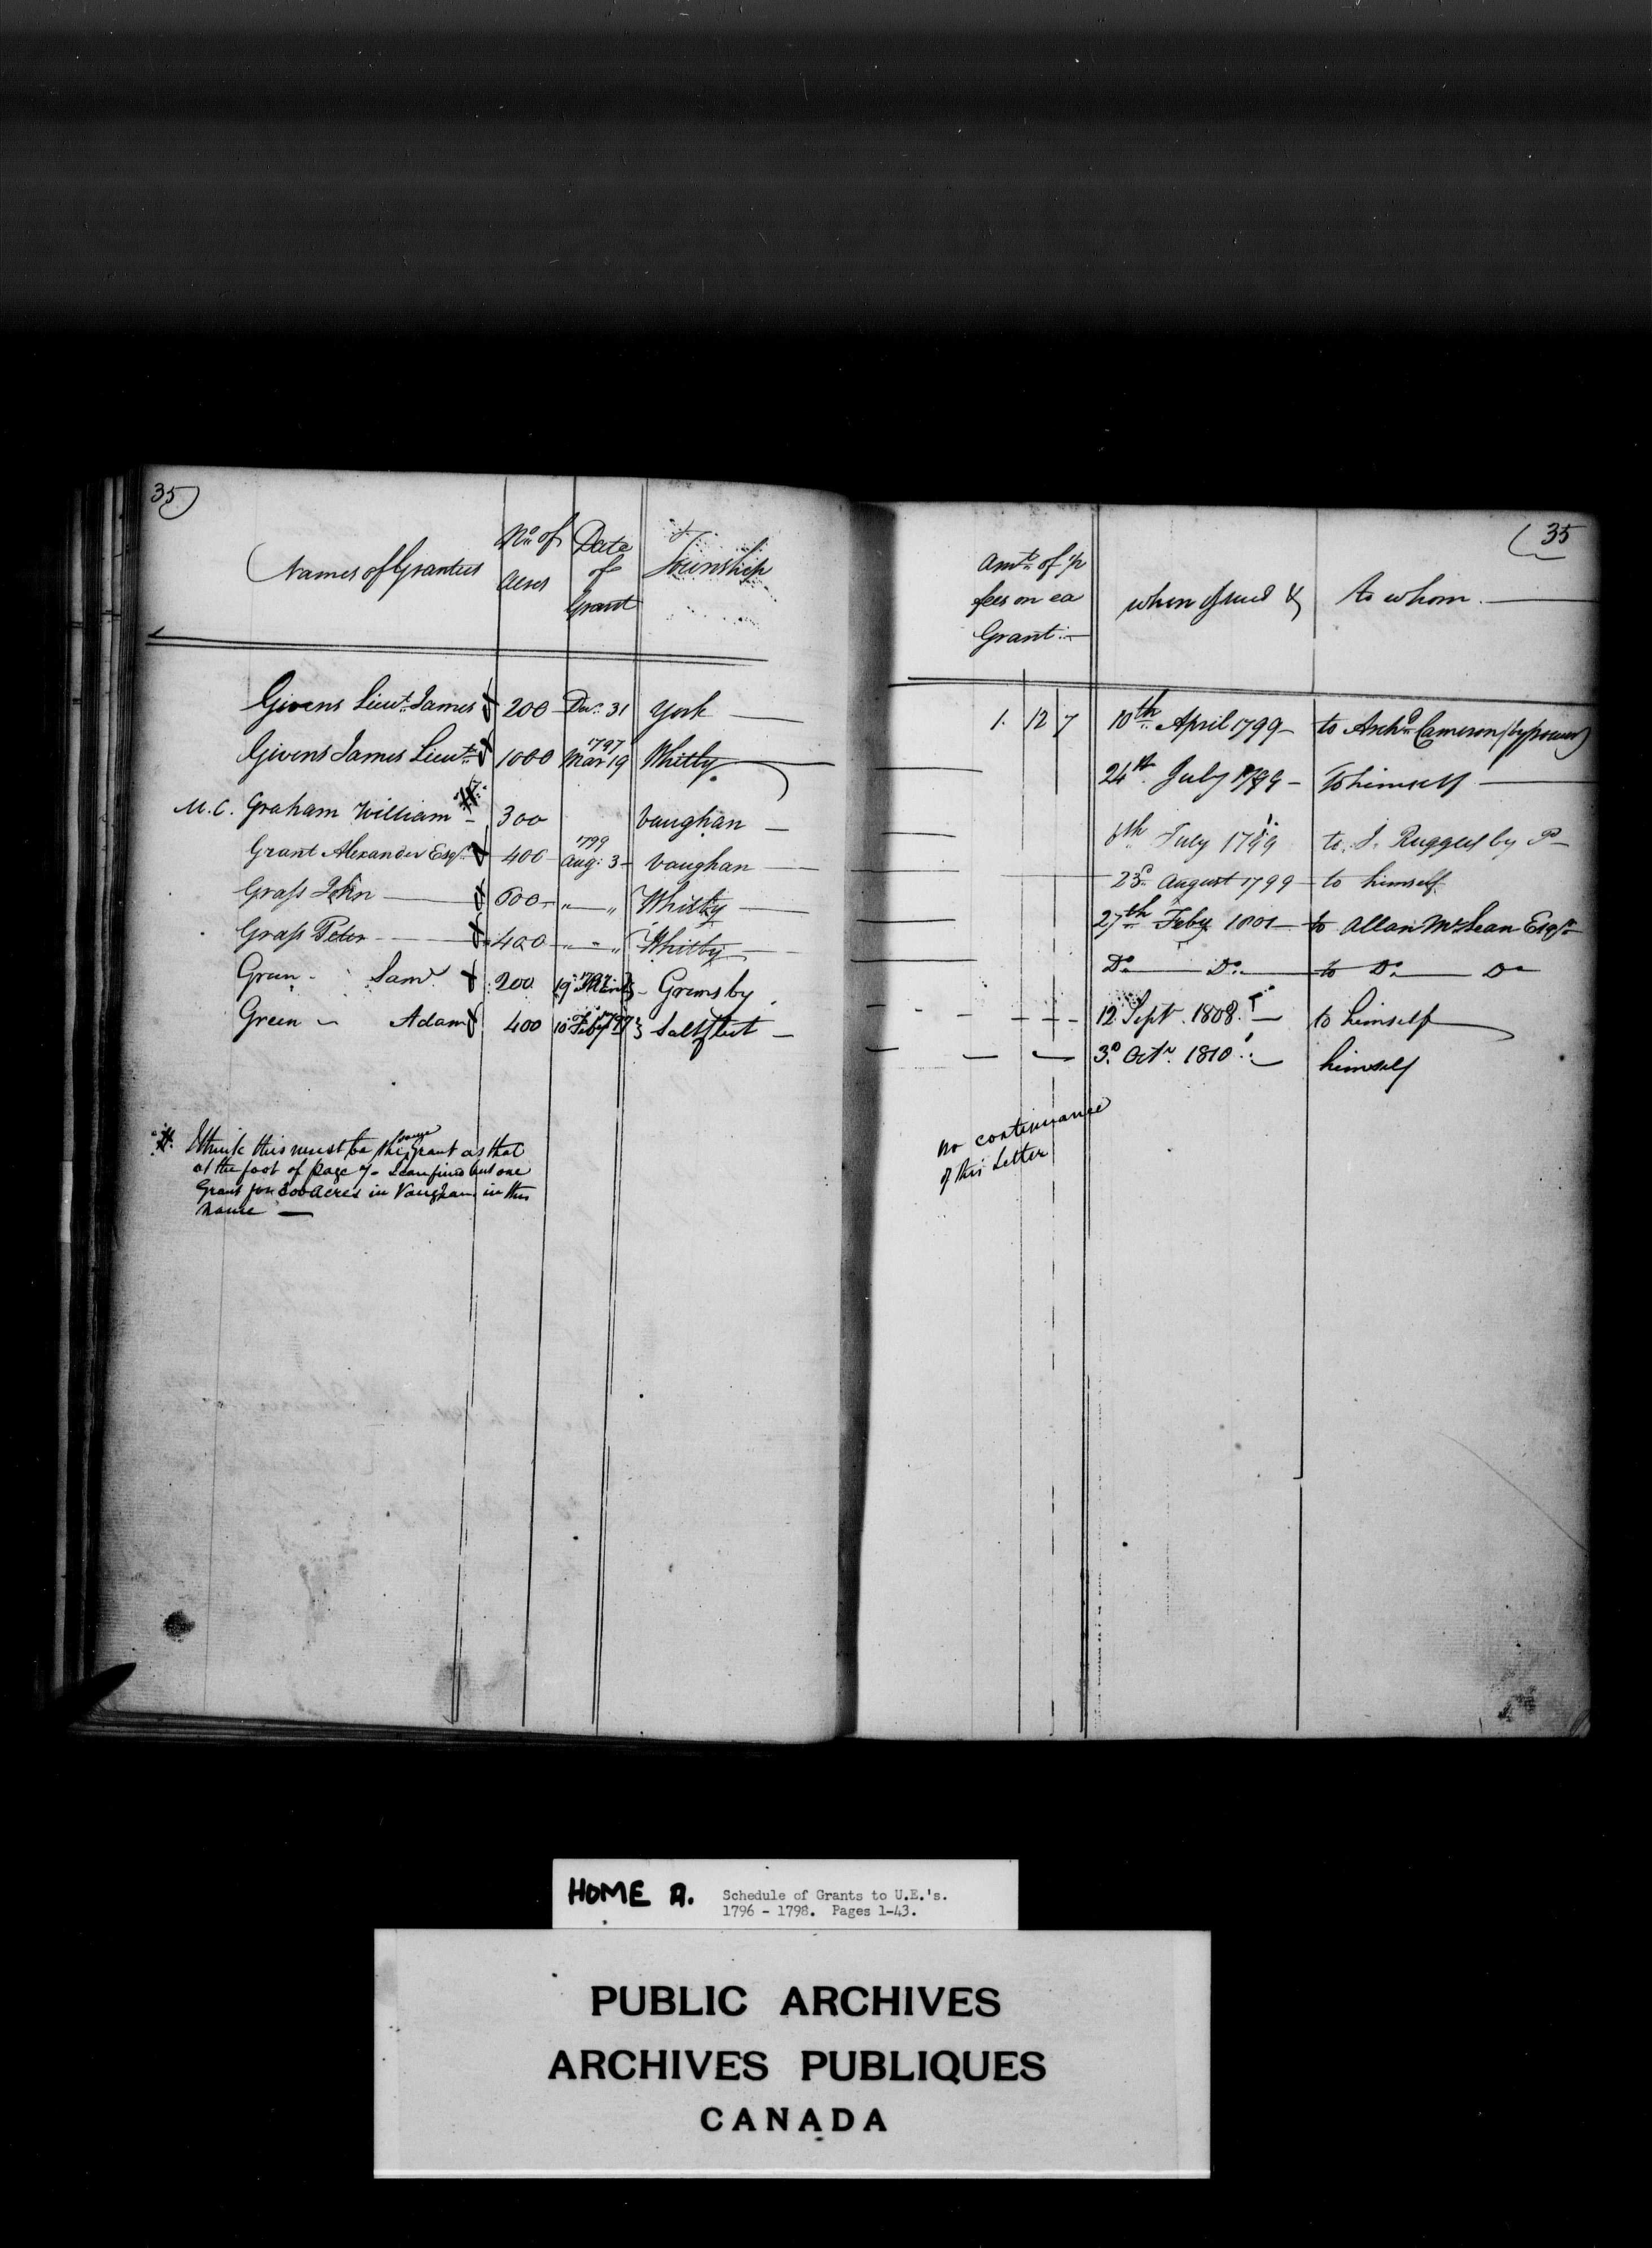 35)
Names of Grantees
No. of Acres
Date of Grant
Township
Givens Lieut. James 200 Decr. 31 York
Givens James Lieut. 1000 1797 Mar 19 Whitby
M.C. Graham William # 300 Vaughan
Grant Alexander Esqr. 400 1799 Aug: 3 Vaughan
Grass John 600 " " Whitby
Grass Peter 400 " " Whitby
Green Saml. 200 19 1797 Grimsby
Green Adam 400 10 Feby 1797 Saltfleet
# I think this must be the same grant as that
at the foot of page 7 - I can find but one
Grant for 300 acres in Vaughan in this
name
(35
Amt. of ½
fees on ea
Grant
when issued &
to whom.
1. 12 7 10th April 1799 to Archd. Cameron (by power)
24th July 1799 To himself
6th July 1799 to J. Ruggles by P
23d. August 1799 to himself
27th Feby 1801 to Allan McLean Esqr
Do. Do. to Do. Do
12 Sept. 1808 to himself
3d. Octr. 1810 himself
no continuance
of this Letter
HOME A. Schedule of Grants to U.E.'s.
1796 - 1798. Pages 1-43.
PUBLIC ARCHIVES
ARCHIVES PUBLIQUES
CANADA